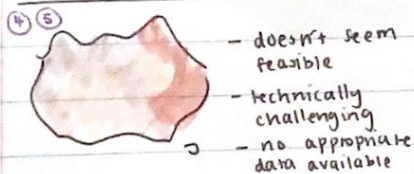 ④ ⑤
- doesn't seem
feasible
- technically
challenging
- no appropriate
data available